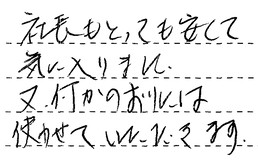 社長もとっても安くて
気に入りました
又、何かのおりには
使わせていただきます。